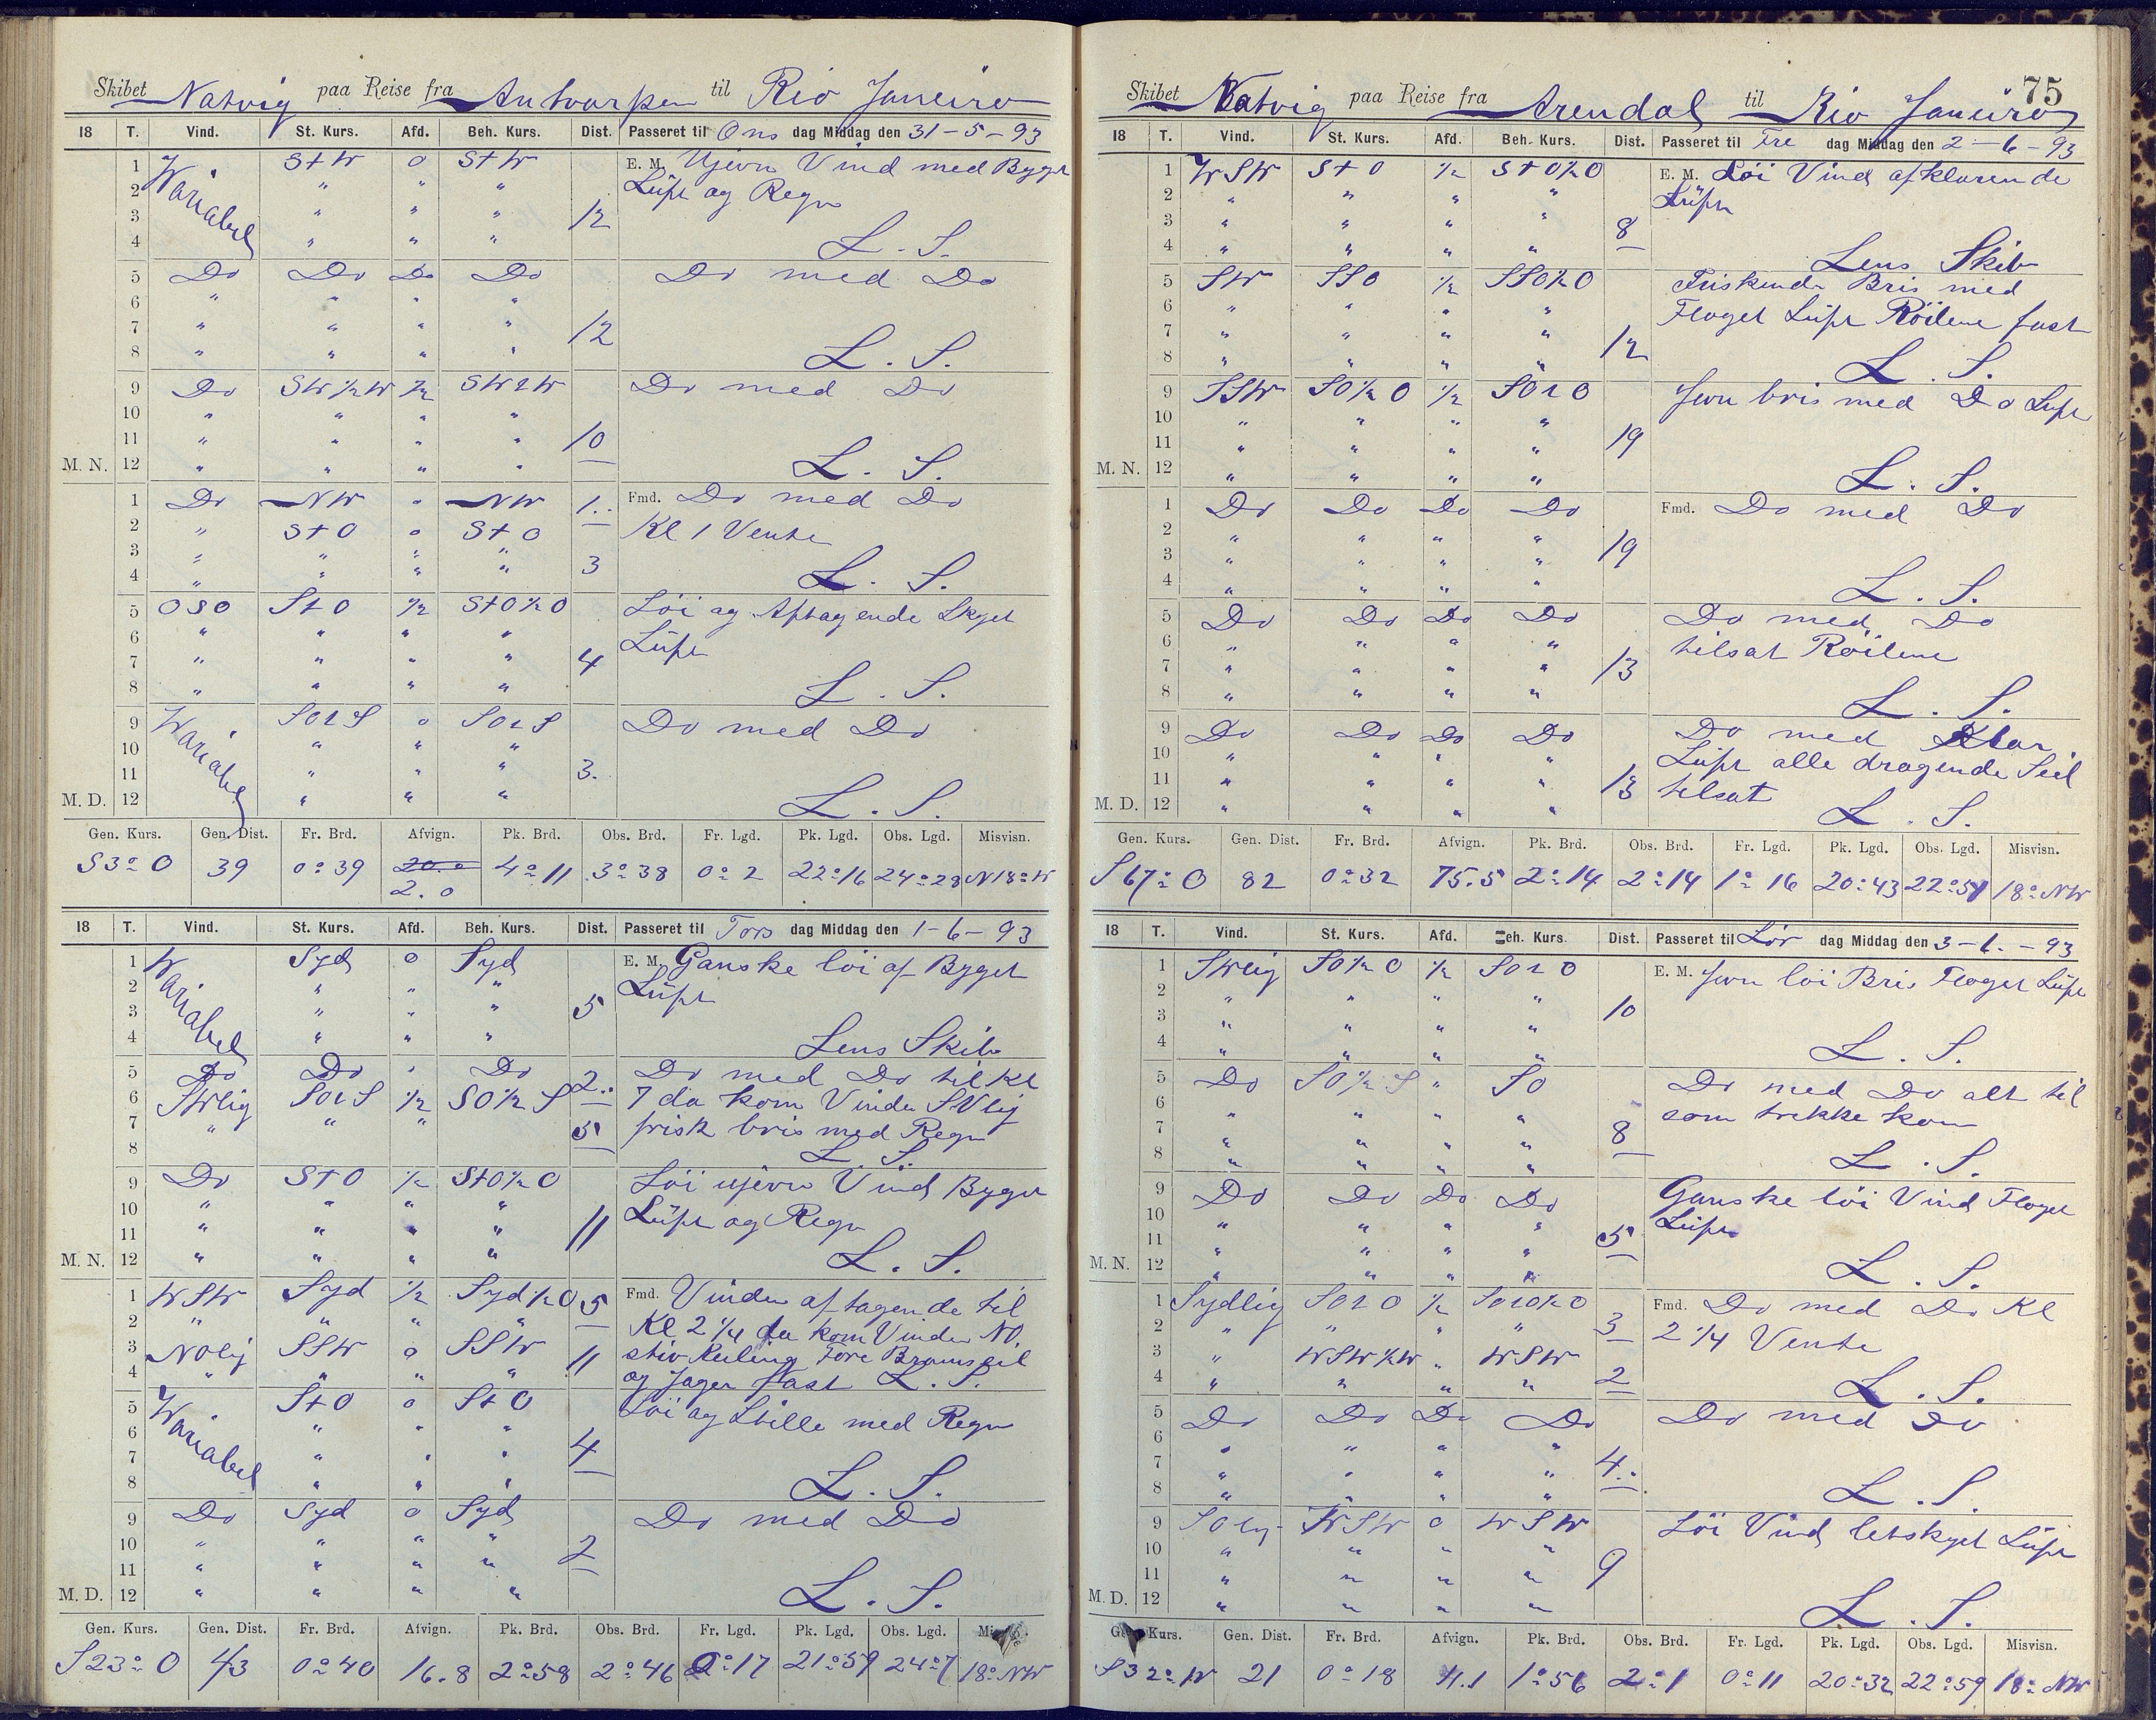 Skibet Natvig paa Reise fra Antvarpen til Rio Janeiro
18 T. Vind. St. Kurs. Afd. Beh. Kurs. Dist. Passeret til Ons dag Middag den 31-5-93
1 Variabel StW 0 StW E. M. Ujevn Vind med Byget
2 " " " Luft og Regn
3 " " " 12
4 " " " L. S.
5 Do Do Do Do Do med Do
6 " " " "
7 " " " " 12
8 " " " " L. S.
9 Do SW½W ½ SWtW Do med Do
10 " " " "
11 " " " " 10
M. N. 12 " " " " L. S.
1 Do NW " NW 1.. Fmd. Do med Do
2 " StO 0 StO Kl 1 Vente
3 " " " " 3
4 " " " " L. S.
5 OSO StO ½ StO½O Löi og Aftagende Skyet
6 " " " " Luft
7 " " " " 4
8 " " " " L. S.
9 Variabel SOtS 0 SOtS Do med Do
10 " " "
11 " " " 3.
M. D. 12 " " " L. S.
Gen. Kurs. Gen. Dist. Fr. Brd. Afvign. Pk. Brd. Obs. Brd. Fr. Lgd. Pk. Lgd. Obs. Lgd. Misvisn.
S3°O 39 0°39 20.0 4°11 3°38 0°2 22°16 24°28 N18°W
2.0
18 T. Vind. St. Kurs. Afd. Beh. Kurs. Dist. Passeret til Tors dag Middag den 1-6-93
1 Variabel Syd 0 Syd E. M. Ganske löi af Byget
2 " " " Luft
3 " " " 5
4 " " " Lens Skib
5 Do Do " Do 2.. Do med Do til Kl
6 SWlig SOtS ½ SO½S 7 da kom Vinden SVlig
7 " " " 5 frisk bris med Regn
8 L. S.
9 Do StO ½ StO½O Löi ujevn Vind Byget
10 " " " " Luft og Regn
11 " " " " 11
M. N. 12 " " " " L. S.
1 WSW Syd ½ Syd½O 5 Fmd. Vinden aftagende til
2 " " " " Kl 2¼ da kom Vinden NO.
3 NOlig SSW 0 SSW 11 stiv Kuling Fore Bramseil
4 " " " " og Jager fast L. S.
5 Variabel StO 0 StO Löi og Stille med Regn
6 " " "
7 " " " 4
8 " " " L. S.
9 Do Syd 0 Syd Do med Do
10 " " " " 2
11 " " " "
M. D. 12 " " " " L. S.
Gen. Kurs. Gen. Dist. Fr. Brd. Afvign. Pk. Brd. Obs. Brd. Fr. Lgd. Pk. Lgd. Obs. Lgd.
S23°O 43 0°40 16.8 2°58 2°46 0°17 21°59 24°7 18°NW
75
Skibet Natvig paa Reise fra Arendal til Rio Janeiro
18 T. Vind. St. Kurs. Afd. Beh. Kurs. Dist. Passeret til Fre dag Middag den 2-6-93
1 WSW StO ½ StO½O E. M. Löi Vind afklarende
2 " " " " Luft
3 " " " " 8
4 " " " " Lens Skib
5 SW SSO ½ SSO½O Friskende Bris med
6 " " " " Floget Luft Röilene fast
7 " " " " 12
8 " " " " L. S.
9 SSW SO½O ½ SOtO Jevn bris med Do Luft
10 " " " "
11 " " " " 19
M. N. 12 " " " " L. S.
1 Do Do Do Do Fmd. Do med Do
2 " " " "
3 " " " " 19
4 " " " " L. S.
5 Do Do Do Do Do med Do
6 " " " " tilsat Röilene
7 " " " " 13
8 " " " " L. S.
9 Do Do Do Do Do med Klar
10 " " " " Luft alle dragende Seil
11 " " " " 13 tilsat
M. D. 12 " " " " L. S.
Gen. Kurs. Gen. Dist. Fr. Brd. Afvign. Pk. Brd. Obs. Brd. Fr. Lgd. Pk. Lgd. Obs. Lgd. Misvisn.
S67°O 82 0°32 75.5 2°14 2°14 1°16 20°43 22°51 18°NW
18 T. Vind. St. Kurs. Afd. Beh. Kurs. Dist. Passeret til Lör dag Middag den 3-6.-93
1 SWlig SO½O ½ SOtO E. M. Jevn löi Bris Floget Luft
2 " " " "
3 " " " " 10
4 " " " " L. S.
5 Do SO½S " SO Do med Do alt til
6 " " " " som trekke kan
7 " " " " 8
8 " " " " L. S.
9 Do Do Do Do Ganske löi Vind Floget
10 " " " " Luft
11 " " " " 5
M. N. 12 " " " " L. S.
1 Sydlig SOtO ½ SOtO½O Fmd. Do med Do Kl
2 " " " " 3 2¼ Vente
3 " WSW½W " WSW
4 " " " " 2 L. S.
5 Do Do Do Do Do med Do
6 " " " "
7 " " " " 4..
8 " " " " L. S.
9 SOlig WSW 0 WSW Löi Vind letskyet Luft
10 " " " "
11 " " " " 9
M. D. 12 " " " " L. S.
Kurs. Gen. Dist. Fr. Brd. Afvign. Pk. Brd. Obs. Brd. Fr. Lgd. Pk. Lgd. Obs. Lgd. Misvisn.
S32°W 21 0°18 11.1 1°56 2°1 0°11 20°32 22°59 18°NW